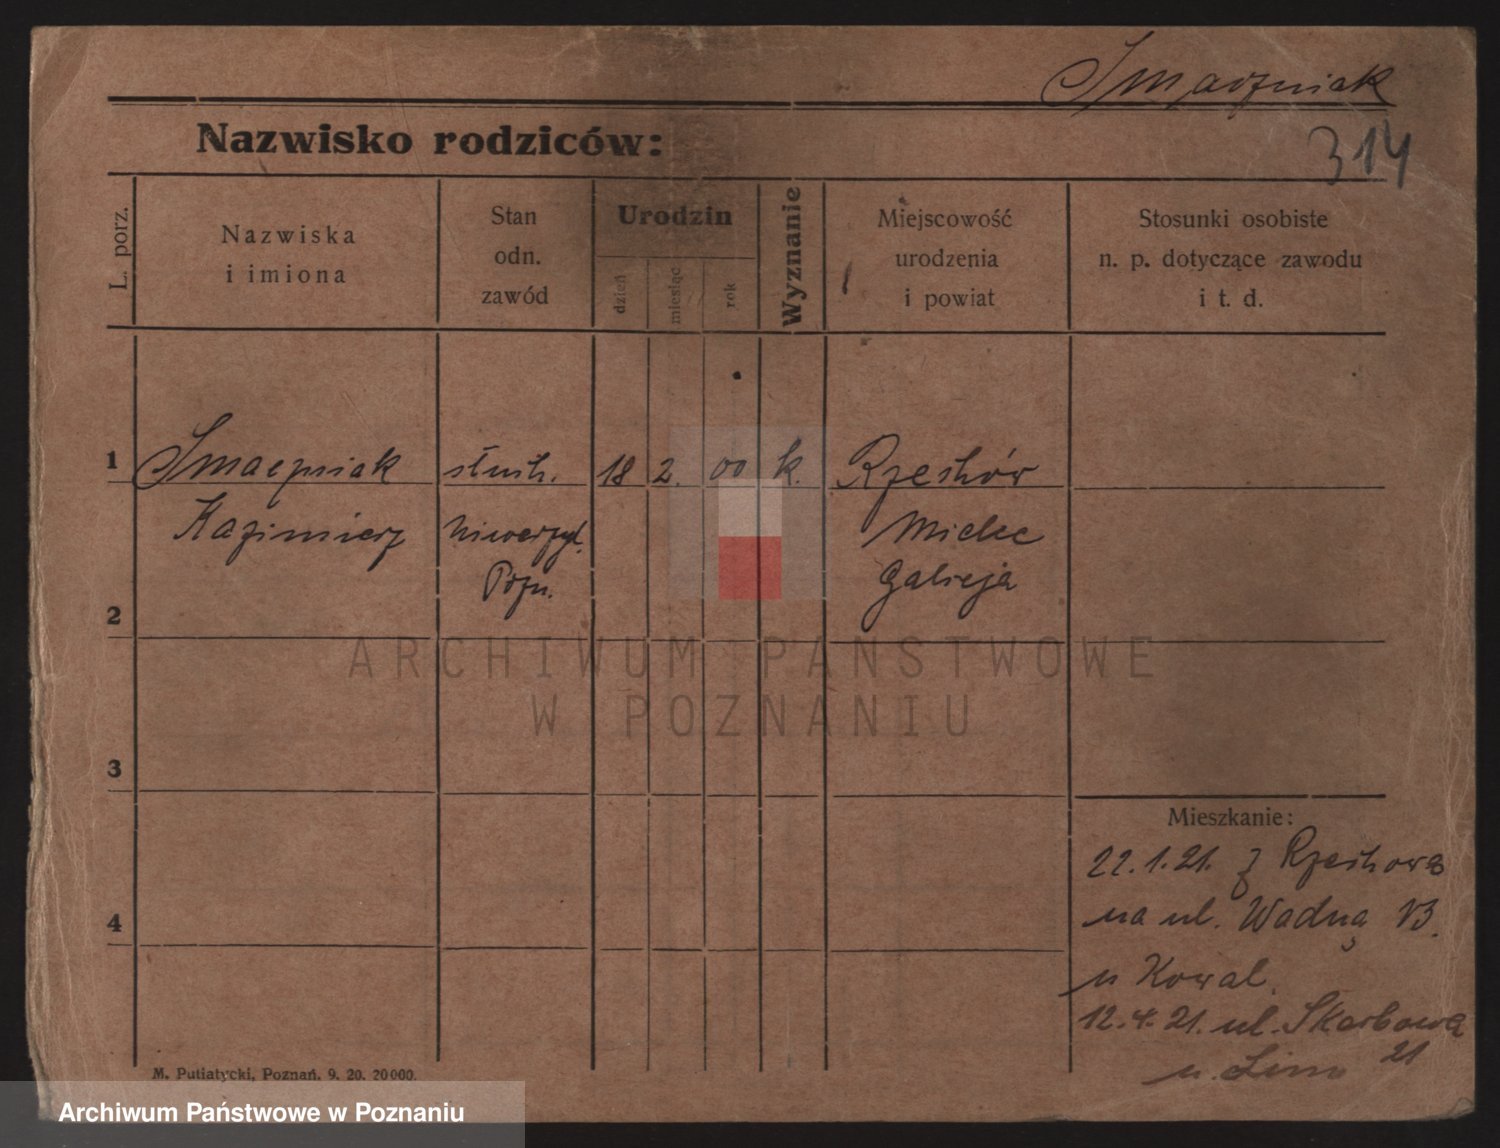 Smaczniak
314
Nazwisko rodziców:
L. porz.
Nazwiska
i imiona
Stan
odn.
zawód
Urodzin
dzień
miesiąc
rok
Wyznanie
Miejscowość
urodzenia
i powiat
Stosunki osobiste
n. p. dotyczące zawodu
i t. d.
1
Smaczniak
Kazimierz
słuch.
Uniwerzyt.
Pozn.
18
2.
00
k.
Rzeszów
Mielec
Galicja
2
3
4
Mieszkanie:
22.1.21. z Rzeszowa
na ul. Wodną 13.
u Kowal.
12.4.21. ul. Skarbowa
21
M. Putiatycki, Poznań. 9. 20. 20000.
ARCHIWUM PAŃSTWOWE
W POZNANIU
Archiwum Państwowe w Poznaniu